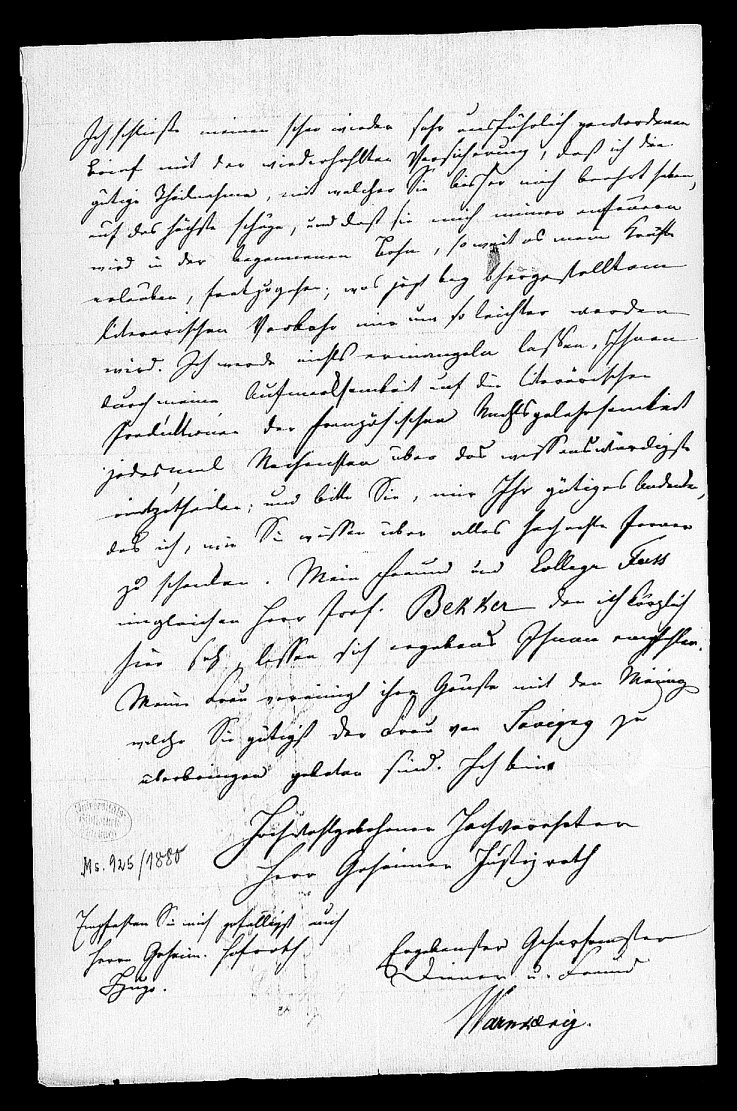 Ich schließe meinen schon wieder sehr ausführlich gewordenen
Brief mit der wiederhohlten Versicherung, daß ich die
gütige Theilnahme, mit welcher Sie bisher mich beehrt haben,
auf das höchste schätze, und daß sie mich immer anfeuern
wird in der begonnenen Bahn, so weit es meine Kräfte
erlauben, fortzugehen; was jetzt bey hergestelltem
literarischen Verkehr mir um so leichter werden
wird. Ich werde nichts ermangeln lassen, Ihnen
durch meine Aufmerksamkeit auf die literärischen
Produktionen der französischen Rechtsgelehrsamkeit
jedesmal Nachrichten über das wissenswürdigste
mitzutheilen; und bitte Sie, mir Ihr gütiges Andenken,
das ich, wie Sie wissen über alles hochachte ferner
zu schenken. Mein Freund und Kollege Fuss
imgleichen Herr Prof. Bekker den ich kürzlich
hier sah, lassen sich ergebenst Ihnen empfehlen.
Meine Frau vereinigt ihre Grüße mit den Meinigen
welche Sie gütigst der Frau von Savigny zu
überbringen gebeten sind. Ich bin
Hochwohlgebohrner Hochverehrter
Herr Geheimer Justizrath
Empfehlen Sie mich gefälligst auch
Herrn Geheim. Hofrath
Hugo.
Ergebenster Gehorsamster
Diener u. Freund
Warnkönig.
Universitäts-
Bibliothek
Ms. 925/1880